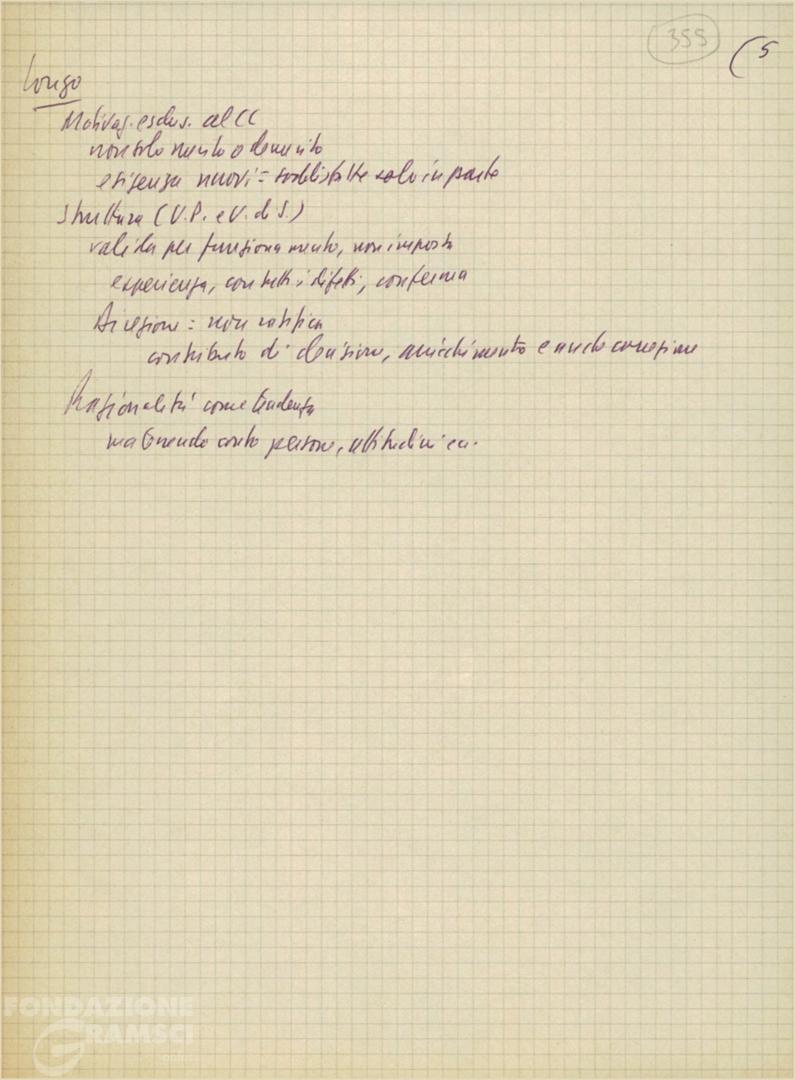 355
(5
Longo
Motivaz. esclus. al CC
non solo merito o demerito
esigenza nuovi = soddisfatte solo in parte
Struttura (U.P. e U. d S.)
valida per funzionamento, non imposta
esperienza, con tutti i difetti, conferma
Direzione = non ratifica
contributo di decisione, arricchimento e anche correzione
Razionalità come tendenza
ma tenendo conto persone, attitudini ecc.
FONDAZIONE
GRAMSCI